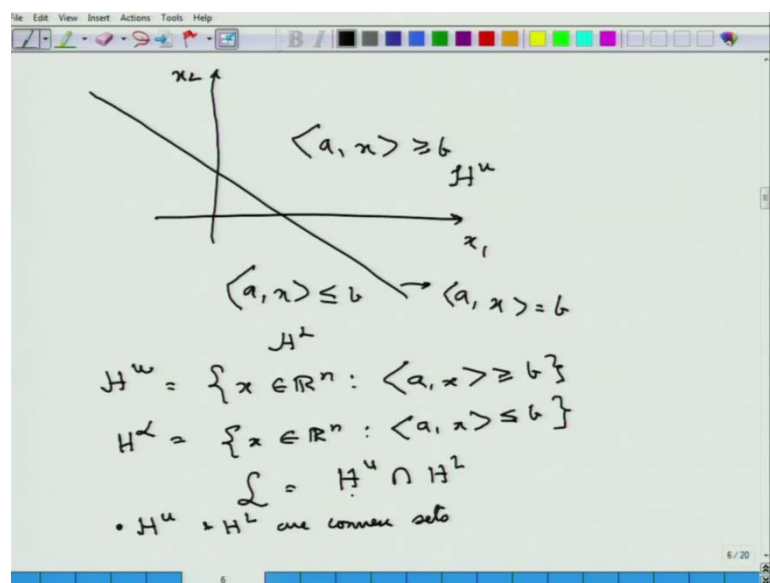 File Edit View Insert Actions Tools Help
B I
x₂
⟨a, x⟩ ≥ b
H^u
x₁
⟨a, x⟩ ≤ b → ⟨a, x⟩ = b
H^L
H^u = {x ∈ ℝⁿ : ⟨a, x⟩ ≥ b}
H^L = {x ∈ ℝⁿ : ⟨a, x⟩ ≤ b}
L = H^u ∩ H^L
• H^u & H^L are convex sets
6 / 20
6